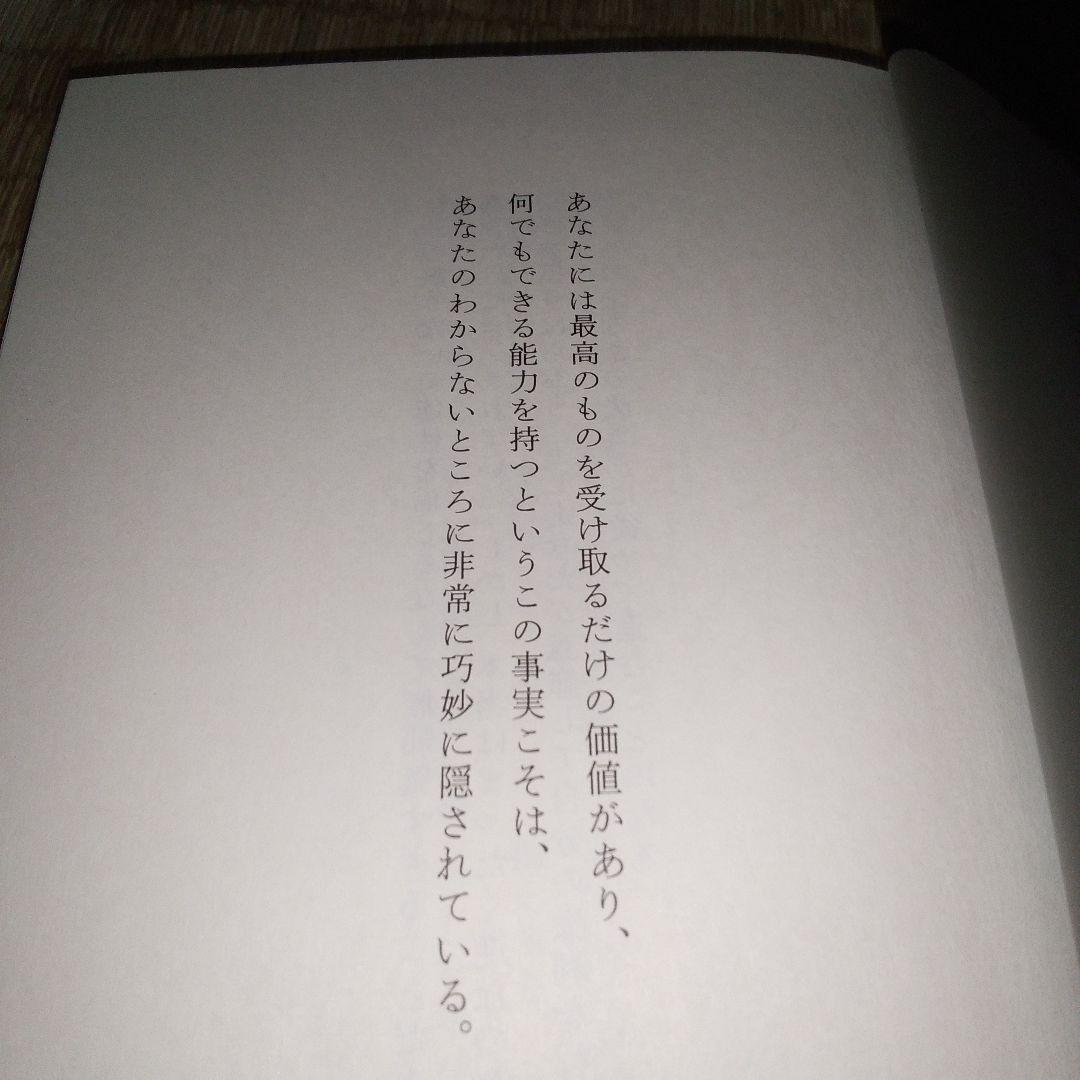 あなたには最高のものを受け取るだけの価値があり、
何でもできる能力を持つというこの事実こそは、
あなたのわからないところに非常に巧妙に隠されている。